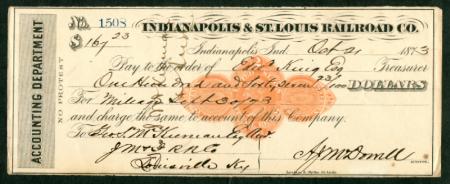 No. 1508 INDIANAPOLIS & ST. LOUIS RAILROAD CO.
$167 23 Indianapolis Ind. Oct 21 1873
Pay to the order of Edw. King Esq Treasurer
One Hundred and Sixty Seven 23/100 DOLLARS
For Mileage Sept 30/73
and charge the same to account of this Company.
To Geo. S. McKiernan Esq
J M & I R R Co
Louisville Ky
ACCOUNTING DEPARTMENT
NO PROTEST